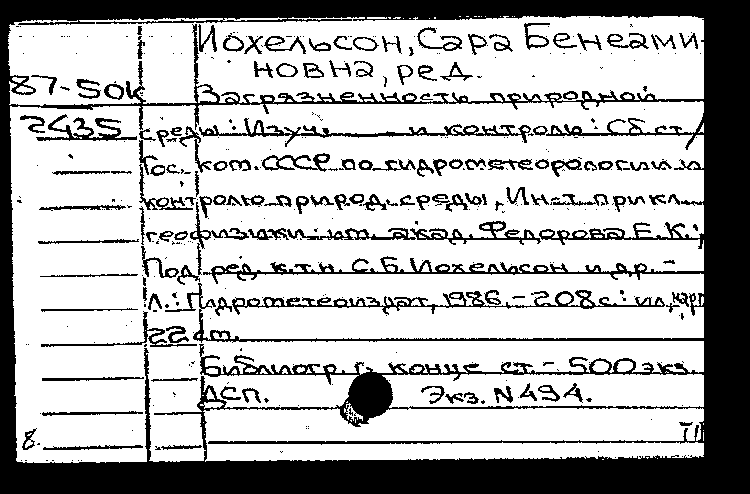 Иохельсон, Сара Бенеами-
новна, ред.
87-50к Загрязненность природной
2435 среды: Изуч. и контроль: Сб ст/
Гос. ком. СССР по гидрометеорологии и
контролю природ. среды, Инст. прикл.
геофизики им. акад. Федорова Е.К.;
Под ред. к.т.н. С.Б. Иохельсон и др. –
Л.: Гидрометеоиздат, 1986. – 208с.: ил, карт
22 см.
Библиогр. в конце ст. – 500 экз.
ДСП. Экз. N 494.
8.